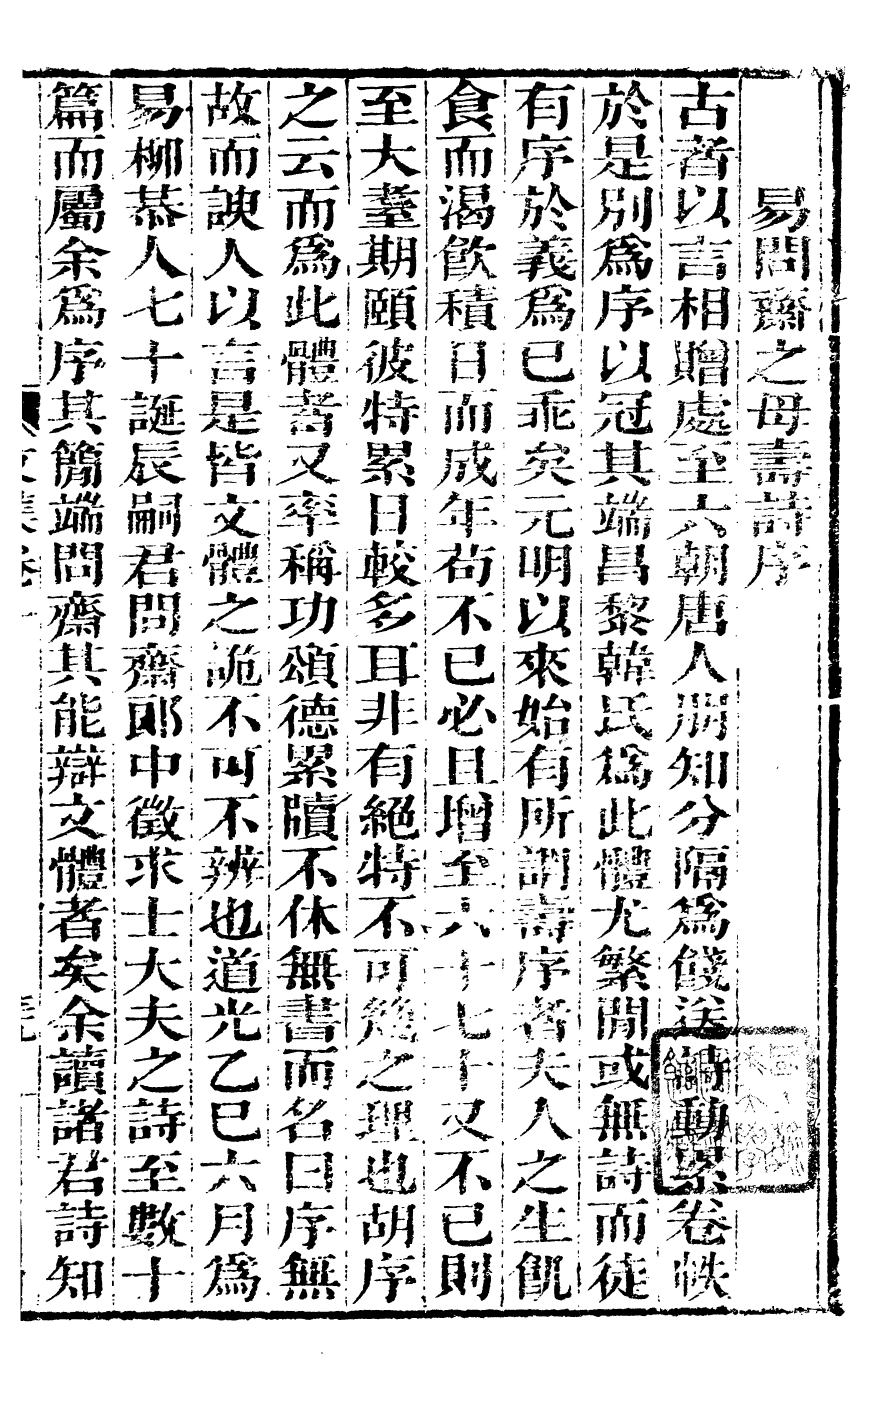 易問齋之母壽詩序
古者以言相贈處至六朝唐人朋知分隔爲餞送詩動累卷帙
於是別爲序以冠其端昌黎韓氏爲此體尤繁閒或無詩而徒
有序於義爲已乖矣元明以來始有所謂壽序者夫人之生飢
食而渴飲積日而成年苟不已必且增至六十七十又不已則
至大耋期頤彼特累日較多耳非有絕特不可幾之理也胡序
之云而爲此體者又率稱功頌德累牘不休無書而名曰序無
故而諛人以言是皆文體之詭不可不辨也道光乙巳六月爲
易柳恭人七十誕辰嗣君問齋郎中徵求士大夫之詩至數十
篇而屬余爲序其簡端問齋其能辯文體者矣余讀諸君詩知
文集卷一